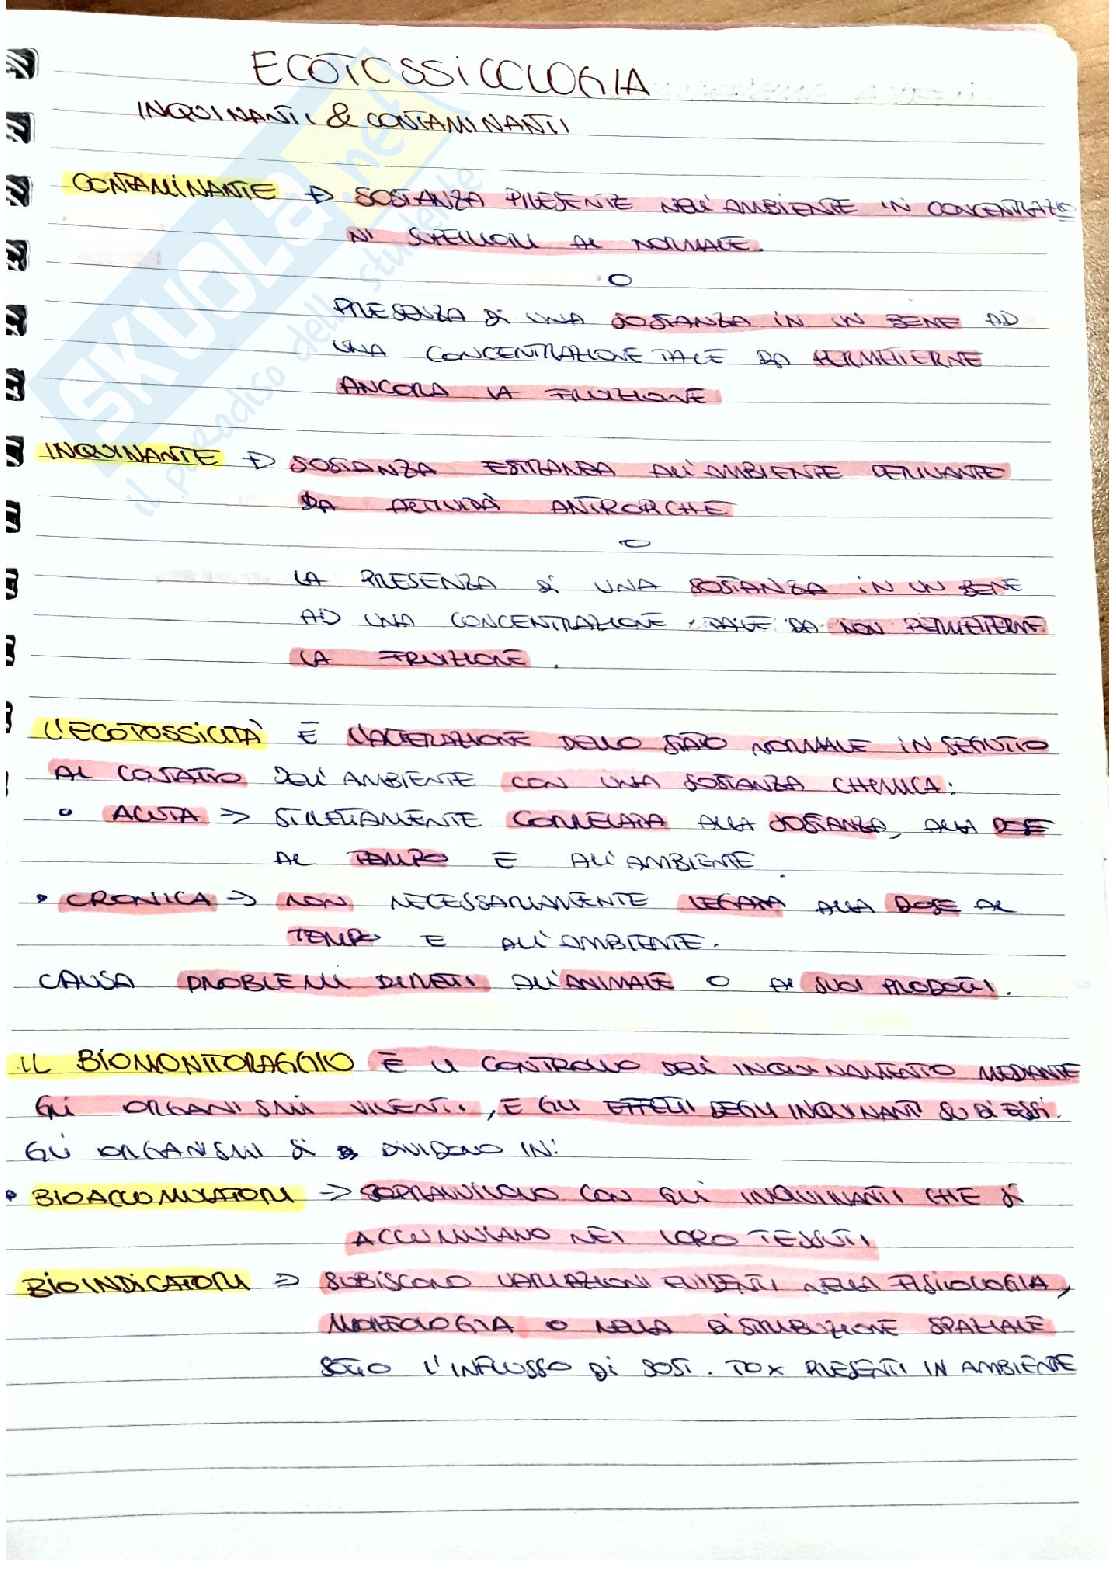 ECOTOSSICOLOGIA
INQUINANTI & CONTAMINANTI
CONTAMINANTE → SOSTANZA PRESENTE NELL'AMBIENTE IN CONCENTRAZIO
NI SUPERIORI AL NORMALE.
O
PRESENZA DI UNA SOSTANZA IN UN BENE AD
UNA CONCENTRAZIONE TALE DA PERMETTERNE
ANCORA LA FRUIZIONE
INQUINANTE → SOSTANZA ESTRANEA ALL'AMBIENTE DERIVANTE
DA ATTIVITÀ ANTROPICHE
O
LA PRESENZA DI UNA SOSTANZA IN UN BENE
AD UNA CONCENTRAZIONE TALE DA NON PERMETTERNE
LA FRUIZIONE.
L'ECOTOSSICITÀ È L'ALTERAZIONE DELLO STATO NORMALE IN SEGUITO
AL CONTATTO DELL'AMBIENTE CON UNA SOSTANZA CHIMICA:
• ACUTA → STRETTAMENTE CORRELATA ALLA SOSTANZA, ALLA DOSE
AL TEMPO E ALL'AMBIENTE.
• CRONICA → NON NECESSARIAMENTE LEGATA ALLA DOSE AL
TEMPO E ALL'AMBIENTE.
CAUSA PROBLEMI DIRETTI ALL'ANIMALE O AI SUOI PRODOTTI.
IL BIOMONITORAGGIO È IL CONTROLLO DELL'INQUINAMENTO MEDIANTE
GLI ORGANISMI VIVENTI, E GLI EFFETTI DEGLI INQUINANTI SU DI ESSI.
GLI ORGANISMI SI DIVIDONO IN:
• BIOACCUMULATORI → SOPRAVVIVONO CON GLI INQUINANTI CHE SI
ACCUMULANO NEI LORO TESSUTI
BIOINDICATORI → SUBISCONO VARIAZIONI EVIDENTI NELLA FISIOLOGIA,
MORFOLOGIA O NELLA DISTRIBUZIONE SPAZIALE
SOTTO L'INFLUSSO DI SOST. TOX PRESENTI IN AMBIENTE
SKUOLA.net
il paradiso dello studente